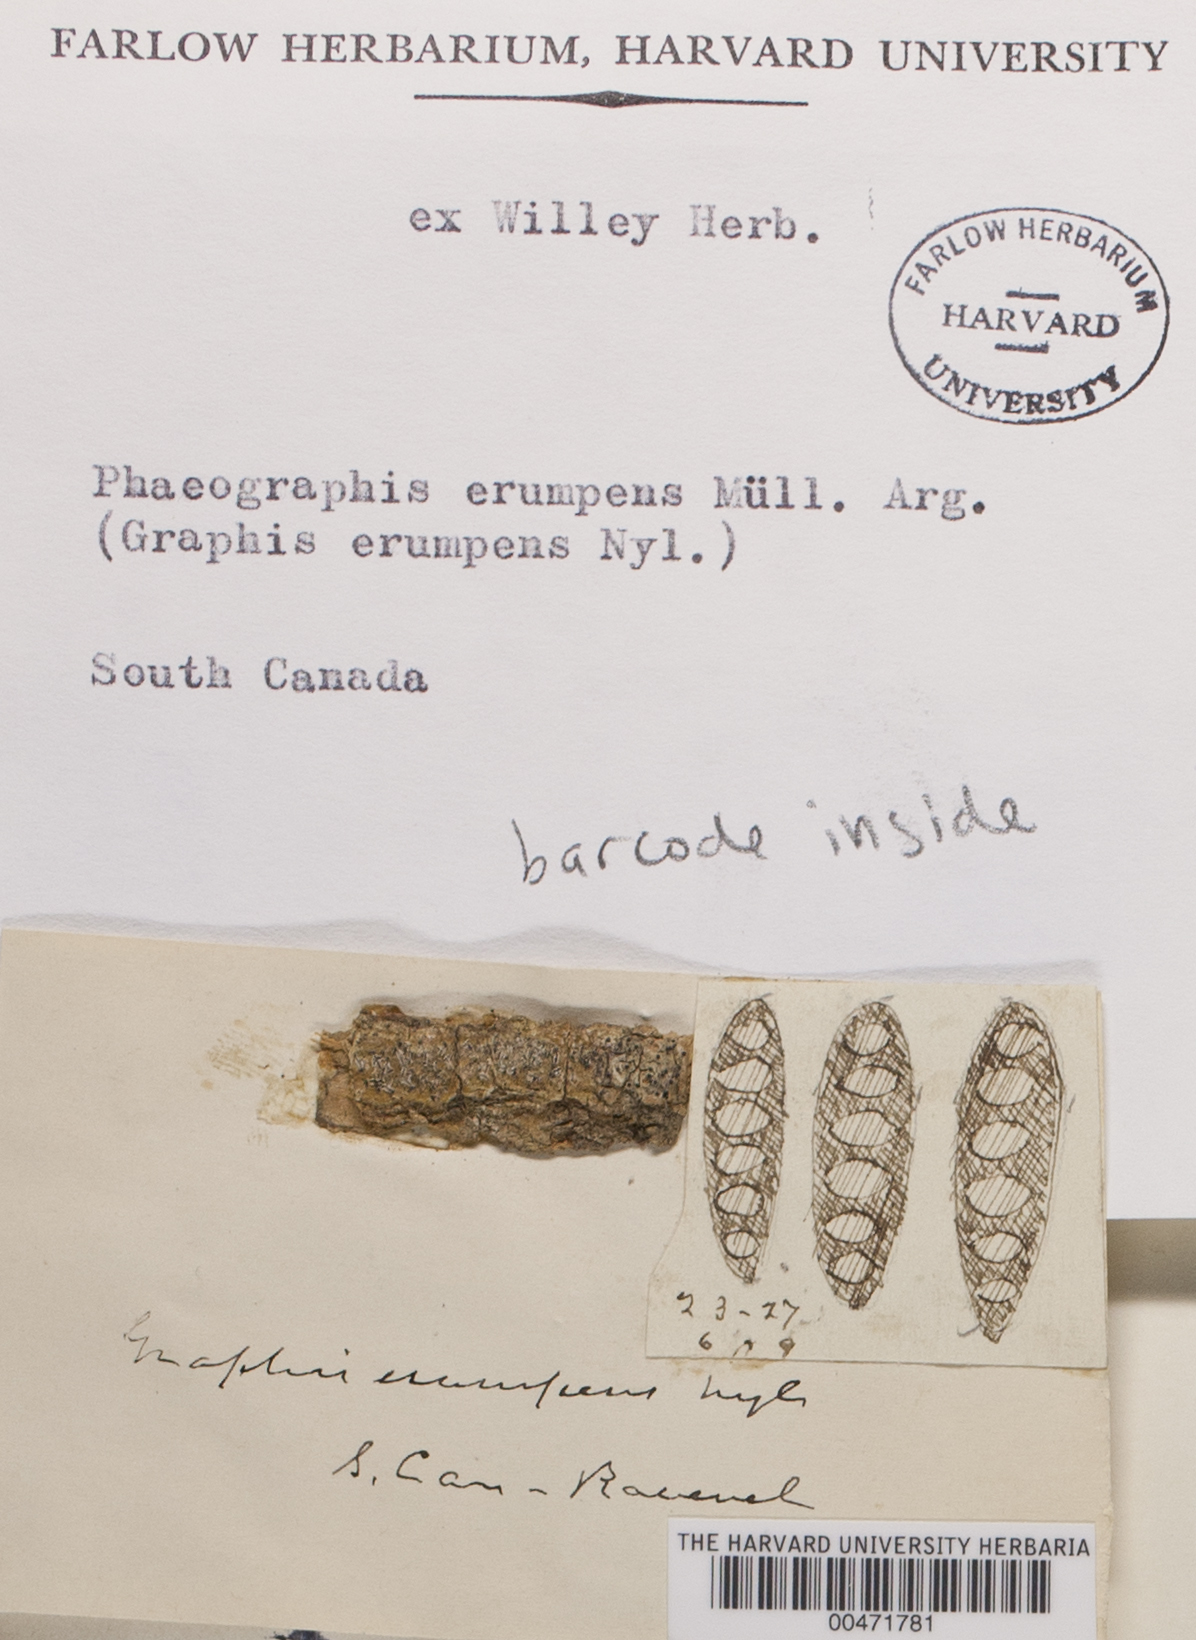 FARLOW HERBARIUM, HARVARD UNIVERSITY
ex Willey Herb.
FARLOW HERBARIUM
HARVARD
UNIVERSITY
Phaeographis erumpens Müll. Arg.
(Graphis erumpens Nyl.)
South Canada
barcode inside
23-27
6 9
Graphis erumpens Nyl
S. Car - Ravenel
THE HARVARD UNIVERSITY HERBARIA
00471781